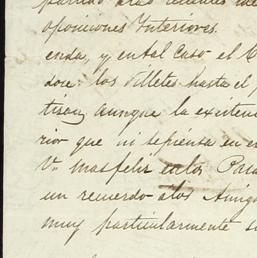 oposiciones Interiores.
enda, y en tal Caso el
doce los villetes hasta el
aunque la
rior que ni se piensa en
V. mas feliz en los
un recuerdo a los Amig
muy particularmente